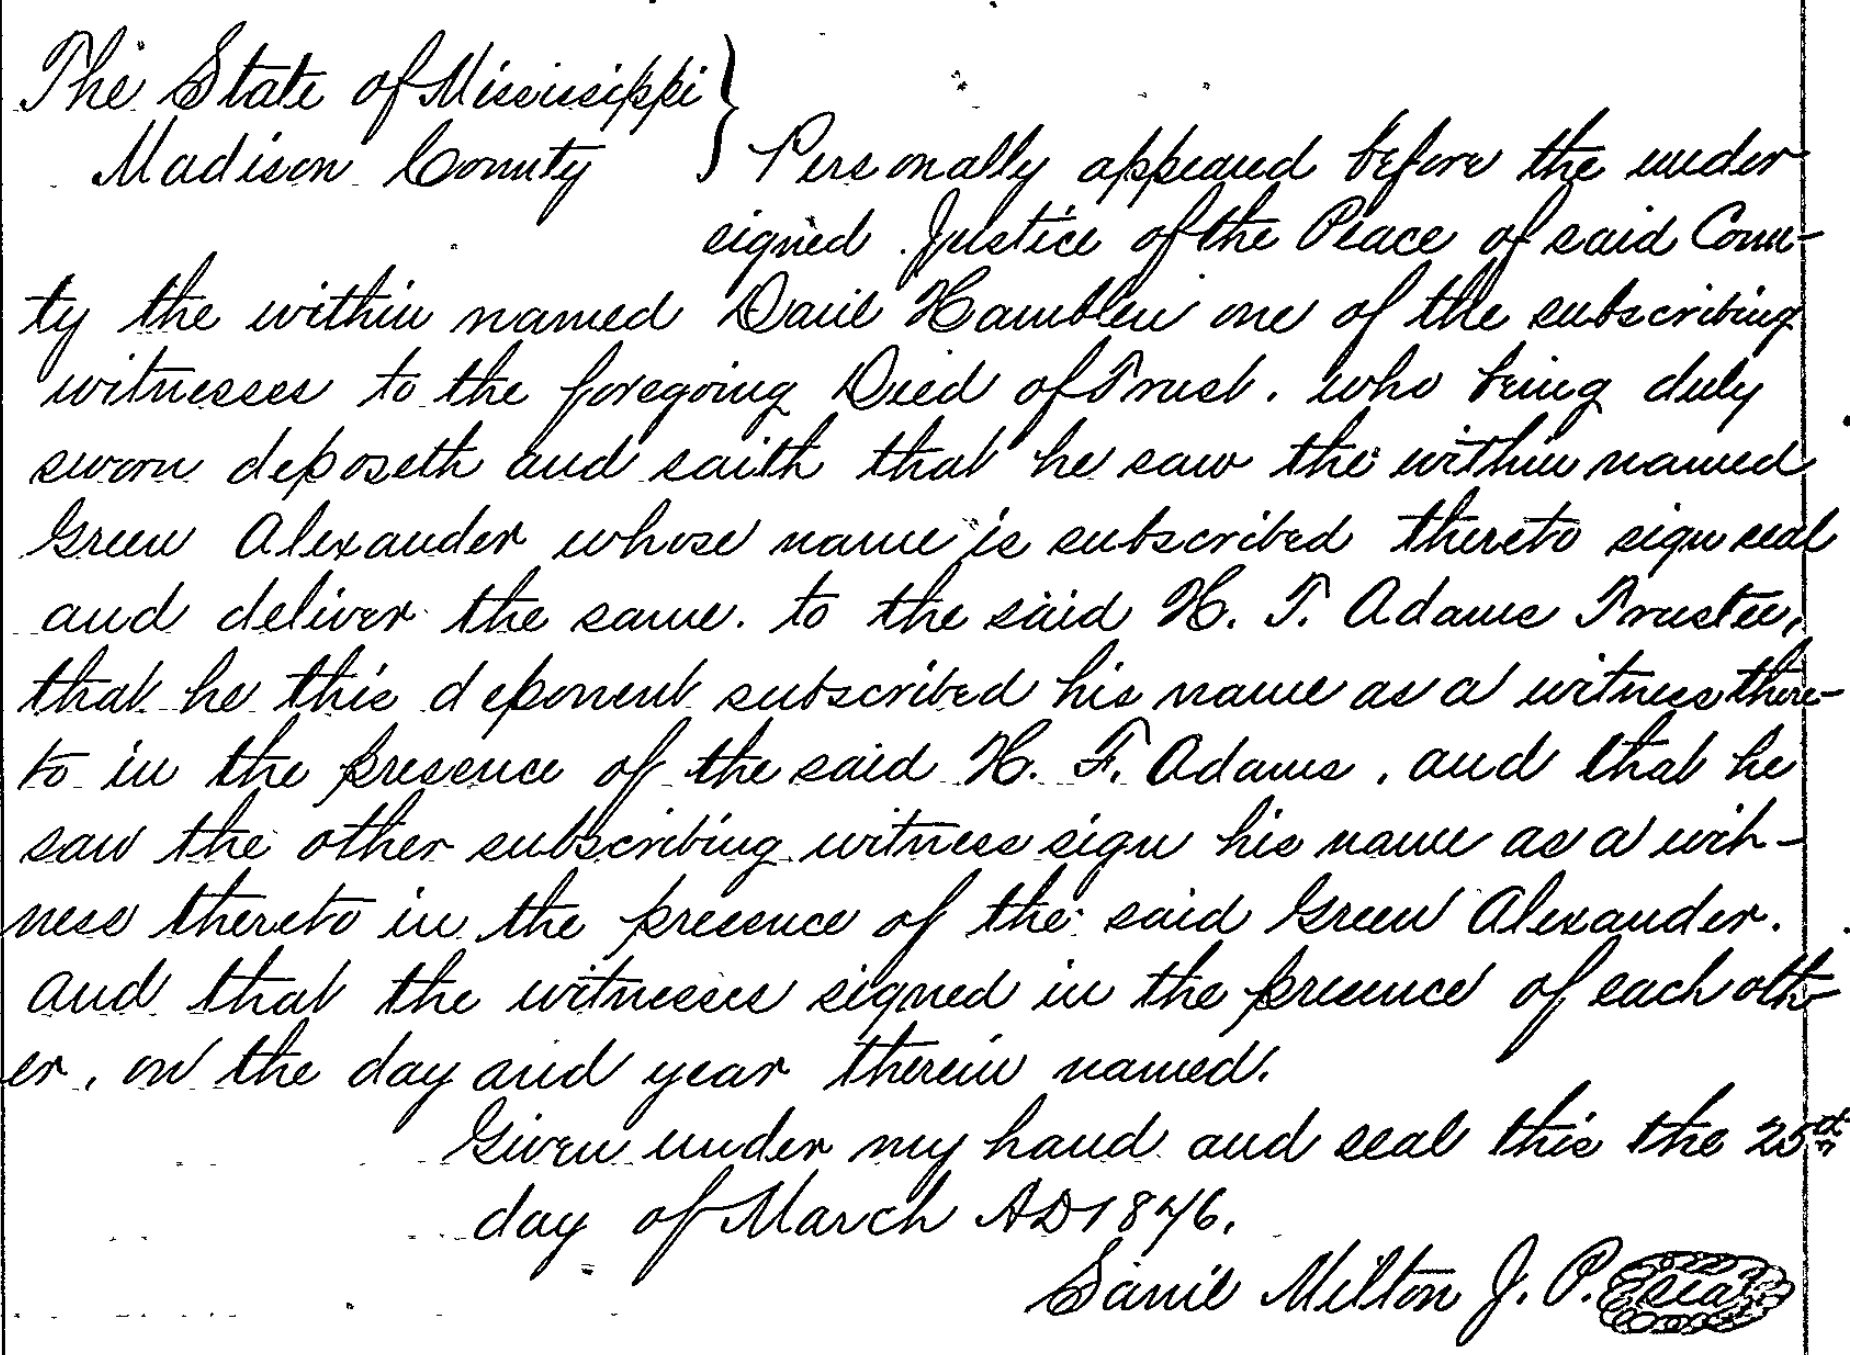 The State of Mississippi }
Madison County } Personally appeared before the under
signed Justice of the Peace of said Coun-
ty the within named Danil Hamblen one of the subscribing
witnesses to the foregoing Deed of Trust. who being duly
sworn deposeth and saith that he saw the within named
Green Alexander whose name is subscribed thereto sign seal
and deliver the same. to the said H. T. Adams Trustee,
that he this deponent subscribed his name as a witness there-
to in the presence of the said H. F. Adams, and that he
saw the other subscribing witness sign his name as a wit-
ness thereto in the presence of the said Green Alexander.
and that the witnesses signed in the presence of each oth-
er, on the day and year therein named.
Given under my hand and seal this the 25th
day of March AD 1876.
Samil Milton J. P. Seal